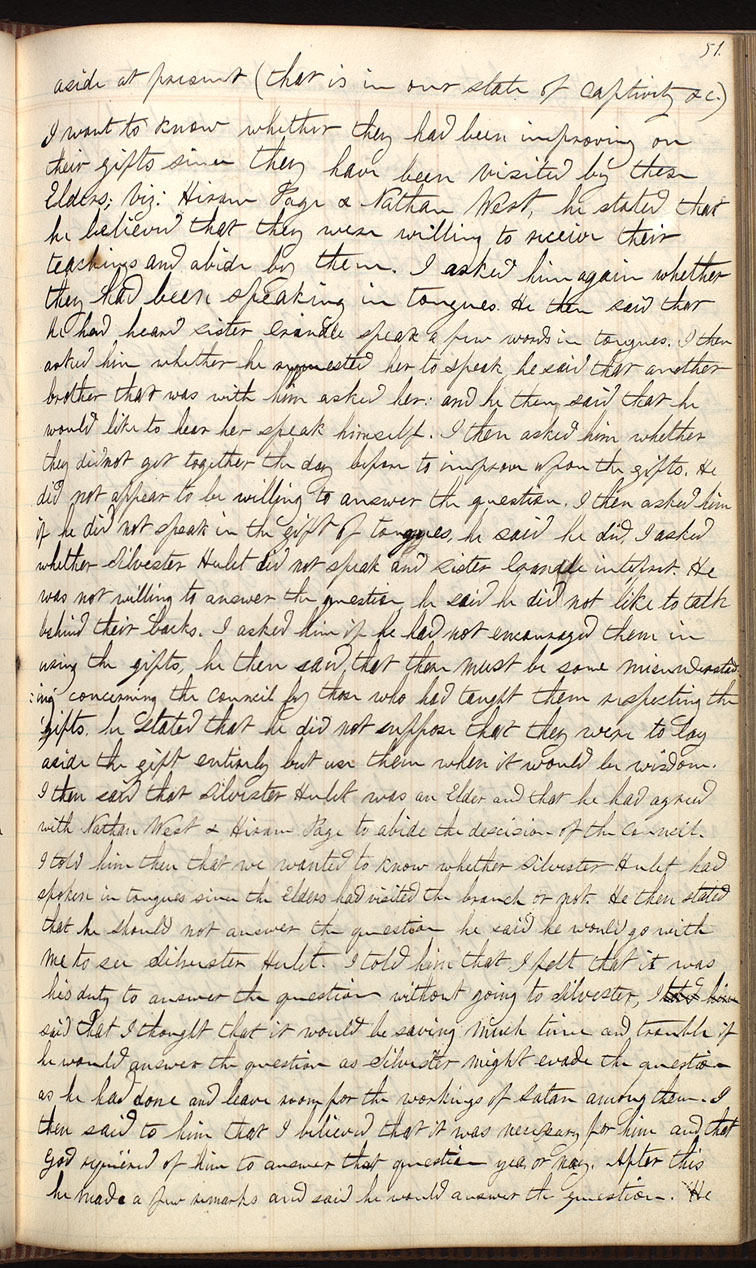 51.
aside at present (that is in our state of captivity &c.)
I want to know whether they had been improving on
their gifts since they have been visited by these
Elders; viz: Hiram Page & Nathan West, he stated that
he believed that they were willing to receive their
teachings and abide by them. I asked him again whether
they had been speaking in tongues. He then said that
he had heard sister Crandle speak a few words in tongues. I then
asked him whether he requested her to speak he said that another
brother that was with him asked her: and he then said that he
would like to hear her speak himself. I then asked him whether
they did not get together the day before to improve upon the gifts. He
did not appear to be willing to answer the question. I then asked him
if he did not speak in the gift of tongues, he said he did, I asked
whether Silvester Hulet did not speak and sister Crandle interpret. He
was not willing to answer the question he said he did not like to talk
behind their backs. I asked him if he had not encouraged them in
using the gifts, he then said, that there must be some misunderstand
:ing concerning the Council by those who had taught them respecting the
gifts. he stated that he did not suppose that they were to lay
aside the gift entirely but use them when it would be wisdom.
I then said that Silvester Hulet was an Elder and that he had agreed
with Nathan West & Hiram Page to abide the descision of the Council.
I told him then that we wanted to know whether Silvester Hulet had
spoken in tongues since the Elders had visited the branch or not. He then stated
that he should not answer the question he said he would go with
me to see Silvester Hulet. I told him that I felt that it was
his duty to answer the question without going to Silvester, I told him
said that I thought that it would be saving much time and trouble if
he would answer the question as Silvester might evade the question
as he had done and leave room for the workings of Satan among them. I
then said to him that I believed that it was necessary for him and that
God required of him to answer that question yea, or nay. After this
he made a few remarks and said he would answer the question. He